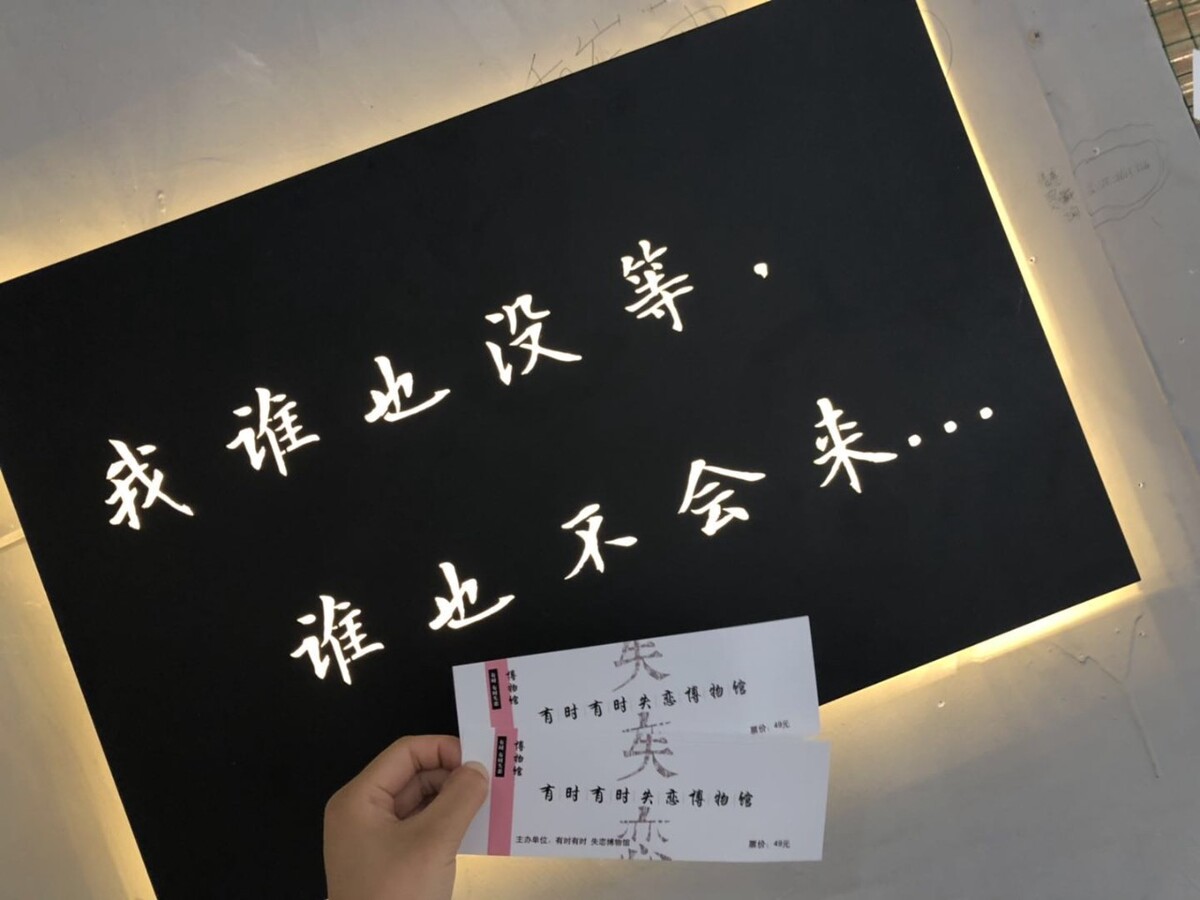 我谁也没等，
谁也不会来...
失
博物馆
有时有时失恋博物馆
票价：49元
失恋
博物馆
有时有时失恋博物馆
主办单位：有时有时 失恋博物馆
票价：49元